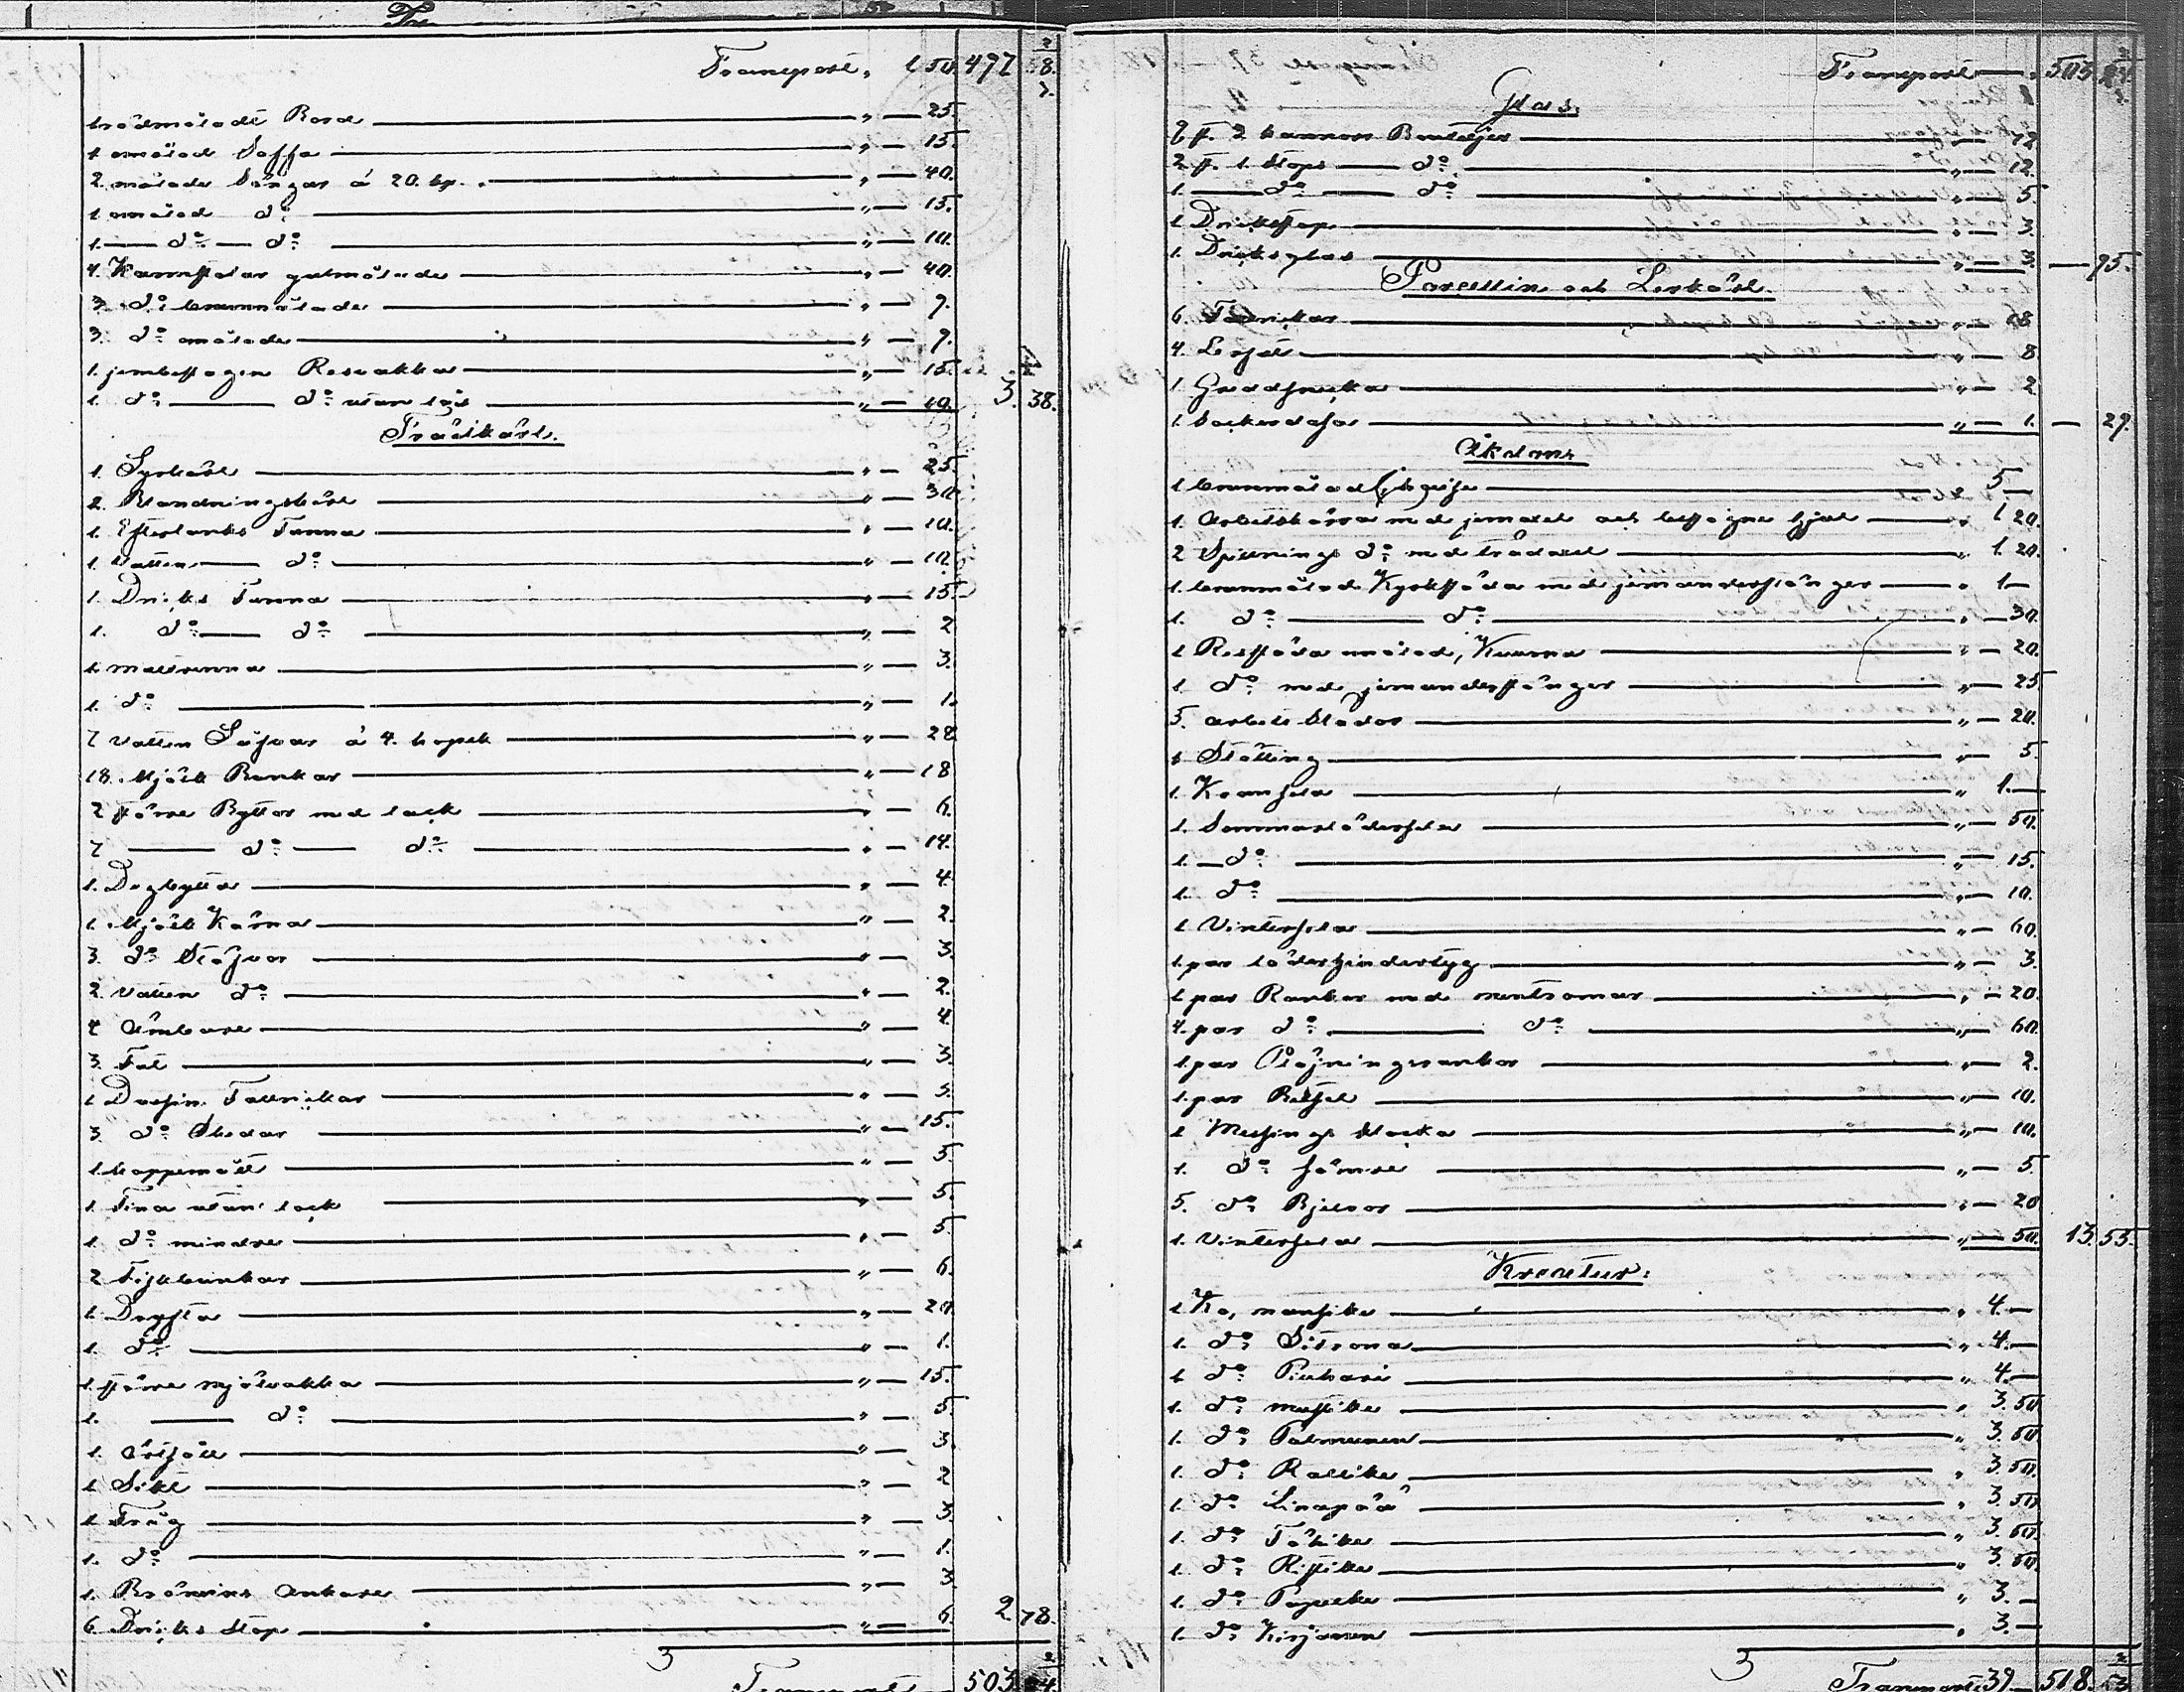 Transport „ 1 50. 497 58.
1 rödmåladt Bord „ — 25.
1 omålad Soffa „ — 15.
2 målade Sängar á 20. kp. „ — 40.
1 omålad do „ — 15.
1. — do — do „ — 10.
4. Karmstolar gulmålade „ — 40.
3. do brunmålade „ — 9.
3. do omålade „ — 9.
1. jernbeslagen Resvakka „ — 15.
1. do — do utan lås „ — 10. 3. 38.
Trädkärl.
1. Syrkärl „ — 25.
2. Blandningskärl „ — 30.
1. Efterlanks Tunna „ — 10.
1. Vatten — do „ — 10.
1. Dricks Tunna „ — 15.
1. do — do „ — 2.
1. maltrenna „ — 3.
1. do „ — 1.
7 vatten Såhvar á 4. kopek „ — 28.
18. Mjölk Bunkar „ — 18
2 större Byttor med lock „ — 6.
7 — do — do „ — 14.
1. Degbytta „ — 4.
1. Mjölk Kärna „ — 2.
3. do Stäfvor „ — 3.
2. Vatten do „ — 2.
4 Ämbare „ — 4.
3. Fat „ — 3.
1 Dussin Tallrickar „ — 3.
3. do Skedar „ — 15.
1. kappemått „ — 5.
1. Tina utan lock „ — 5.
1. do mindre „ — 5.
2 Fiskbunkar „ — 6.
1. Dryfta „ — 20.
1. do „ — 1.
1. större mjölvakka „ — 15.
1. — do „ — 5.
1. „ — 3.
1. Sikt „ — 2
1. Tråg „ — 3.
1. do „ — 1.
1. Bränvins Ankare „ — 3.
6. Dricks Stop „ — 6. 2 78.
3
Transport 503. 24.
Transport — „ 503. 24.
Glas.
st. 2 kannors Bouteljer „ — 12
2 st. 1. Stops — do „ — 12.
1. — do — do „ — 5.
1 Dricksstop „ — 3.
1. Dricksglas „ — 3. —
Porcellin och Lerkärl.
6. Tallrickar „ — 18
4. Lerfat „ — 8
1. Graddsnicka „ — 2
1. Sockerdosa „ — 1. — 29.
Åkdon.
1 brunmålad 5 —
1. Arbetskärra med jernaxel och beslagne hjul „ 1 20.
2 Spillnings do med trädaxel „ 1. 20.
1. brunmålad Kyrksläda med jernunderstänger „ 1 —
1. do — do „ — 30.
1 Ressläda omålad, Kuurna „ — 20.
1 do med jernunderstänger „ — 25
5. Arbets Slädor „ — 20.
1 Stötting „ — 5.
1. „ 1. —
1. Sommarlädersela „ — 50.
1. — do „ — 15.
1. do „ — 10.
1 Vintersela „ — 60.
1. par läderhindertyg „ — 3.
1 par Rankor med „ — 20.
4. par do — do „ — 60.
1 par Plöjningsrankor „ — 2.
1. par Betsel „ — 10.
1 Messings klocka „ — 10.
1. do sämre „ — 5.
5. do Bjellror „ — 20
1. Vintersela „ — 50. 13. 55.
Kreatur:
1. Ko, mansike „ 4. —
1. do Sitrona „ 4. —
1 do „ 4. —
1. do mustike „ 3. 50
1. do Palmunen „ 3. 50.
1. do Rallike „ 3. 50.
1. do Linapää „ 3. 50
1. do Tähike „ 3. 50.
1. do Ristike „ 3. 50.
1. do „ 3. —
1. do Kirjonen „ 3. —
3
Transport 39 — 518. 53